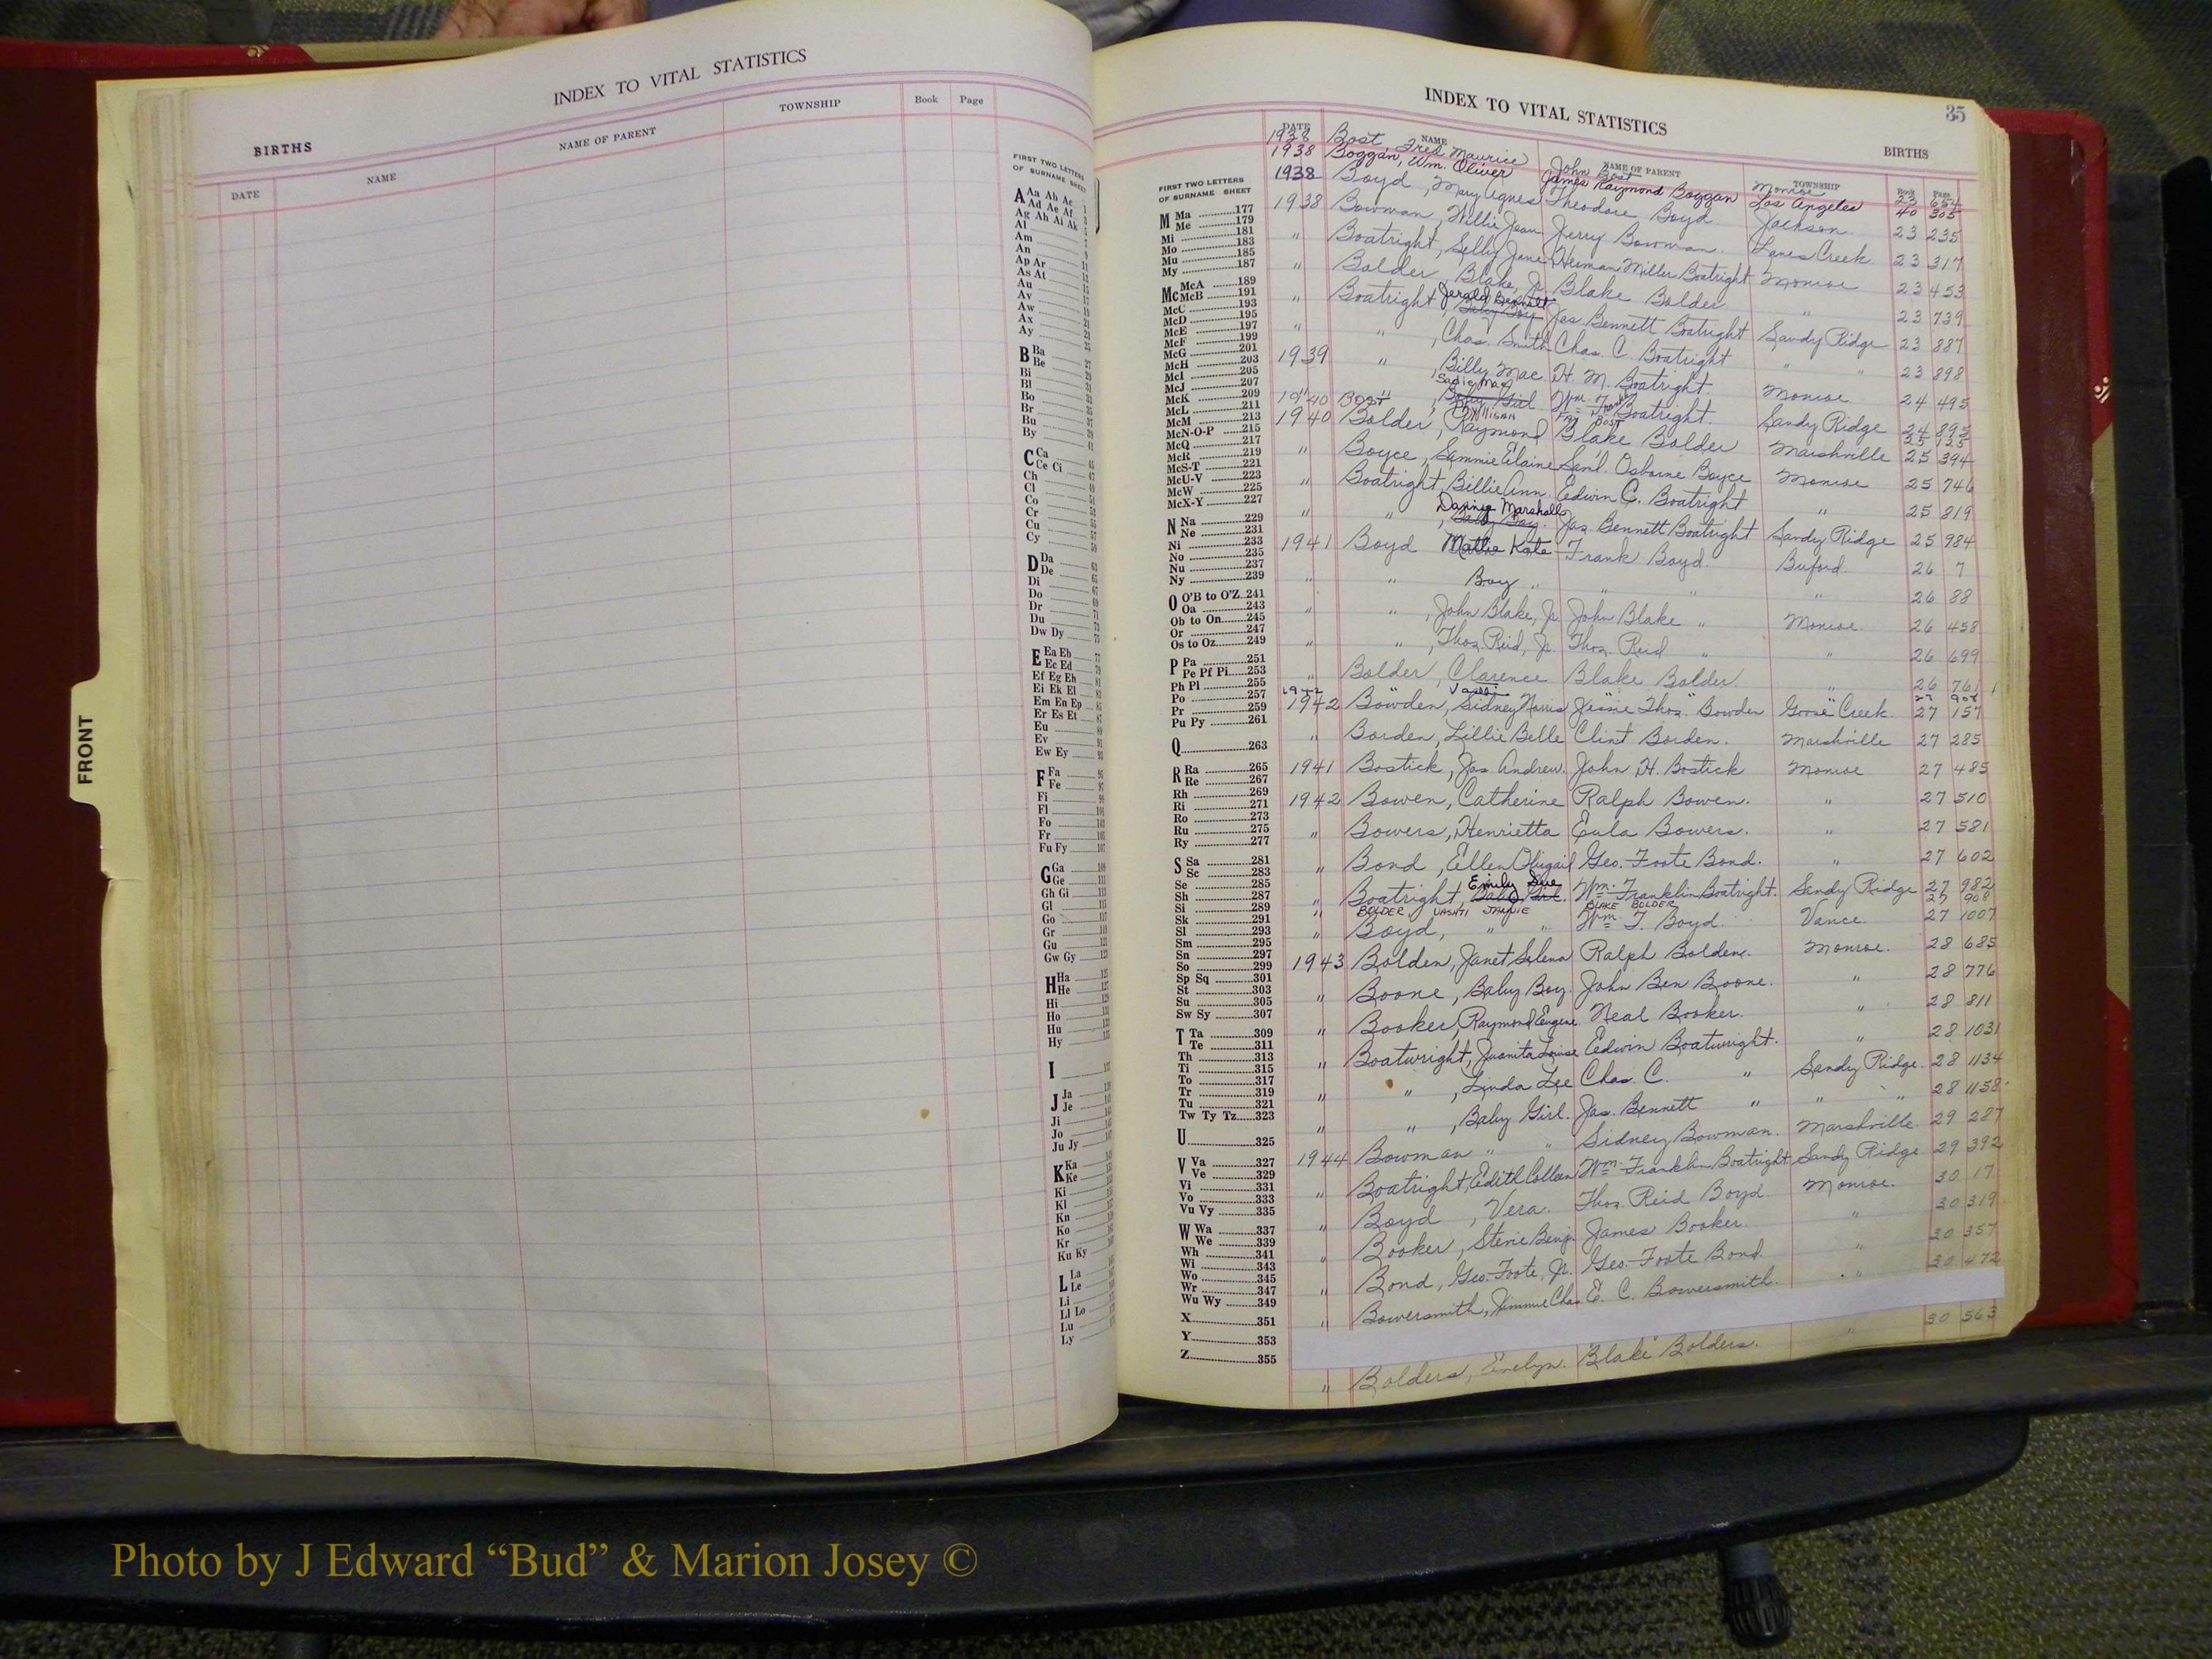 INDEX TO VITAL STATISTICS
BIRTHS
DATE NAME NAME OF PARENT TOWNSHIP Book Page
FIRST TWO LETTERS
OF SURNAME SHEET
A Aa Ab Ac
Ad Ae Af
Ag Ah Ai Ak
Al
Am
An
Ap Ar
As At
Au
Av
Aw
Ax
Ay
B Ba
Be
Bi
Bl
Bo
Br
Bu
By
C Ca
Ce Ci
Ch
Cl
Co
Cr
Cu
Cy
D Da
De
Di
Do
Dr
Du
Dw Dy
E Ea Eb
Ec Ed
Ef Eg Eh
Ei Ek El
Em En Ep
Er Es Et
Eu
Ev
Ew Ey
F Fa
Fe
Fi
Fl
Fo
Fr
Fu Fy
G Ga
Ge
Gh Gi
Gl
Go
Gr
Gu
Gw Gy
H Ha
He
Hi
Ho
Hu
Hy
I
J Ja
Je
Ji
Jo
Ju Jy
K Ka
Ke
Ki
Kl
Kn
Ko
Kr
Ku Ky
L La
Le
Li
Ll Lo
Lu
Ly
FRONT
INDEX TO VITAL STATISTICS 35
BIRTHS
DATE NAME NAME OF PARENT TOWNSHIP Book Page
FIRST TWO LETTERS
OF SURNAME SHEET
M Ma 177
Me 179
Mi 181
Mo 183
Mu 185
My 187
Mc McA 189
McB 191
McC 193
McD 195
McE 197
McF 199
McG 201
McH 203
McI 205
McJ 207
McK 209
McL 211
McM 213
McN-O-P 215
McQ 217
McR 219
McS-T 221
McU-V 223
McW 225
McX-Y 227
N Na 229
Ne 231
Ni 233
No 235
Nu 237
Ny 239
O O'B to O'Z 241
Oa 243
Ob to On 245
Or 247
Os to Oz 249
P Pa 251
Pe Pf Pi 253
Ph Pl 255
Po 257
Pr 259
Pu Py 261
Q 263
R Ra 265
Re 267
Rh 269
Ri 271
Ro 273
Ru 275
Ry 277
S Sa 281
Sc 283
Se 285
Sh 287
Si 289
Sk 291
Sl 293
Sm 295
Sn 297
So 299
Sp Sq 301
St 303
Su 305
Sw Sy 307
T Ta 309
Te 311
Th 313
Ti 315
To 317
Tr 319
Tu 321
Tw Ty Tz 323
U 325
V Va 327
Ve 329
Vi 331
Vo 333
Vu Vy 335
W Wa 337
We 339
Wh 341
Wi 343
Wo 345
Wr 347
Wu Wy 349
X 351
Y 353
Z 355
1938 Bost Fred Maurice John Bost Monroe 23 654
1938 Boggan, Wm. Oliver James Raymond Boggan Los Angeles 40 305
1938 Boyd, Mary Agnes Theodore Boyd Jackson 23 235
1938 Bowman, Willie Jean Jerry Bowman. Lanes Creek 23 317
" Boatright, Selly Jane Herman Miller Boatright Monroe 23 453
" Bolder, Blake, Jr. Blake Bolder " 23 739
" Boatright, Jerald Bennett Baby Boy Jas. Bennett Boatright Sandy Ridge 23 887
" " , Chas. Smith Chas. C. Boatright " " 23 898
1939 " , Billy Mac H. M. Boatright. Monroe 24 495
" " , Sadie Mac Baby Girl Wm. F. Boatright. Sandy Ridge 24 895
1940 Bost Fay Bost 25 125
1940 Bolder, Raymond Blake Bolder Marshville 25 394
" Boyce, Sammie Elaine Saml. Osborne Boyce Monroe 25 746
" Boatright, Billie Ann Edwin C. Boatright " 25 819
" " , Dannie Marshall Baby Boy. Jas. Bennett Boatright Sandy Ridge 25 984
1941 Boyd Mattie Kate Frank Boyd. Buford 26 7
" " Boy " " " " 26 88
" " , John Blake, Jr. John Blake " Monroe. 26 458
" " , Thos. Reid, Jr. Thos. Reid " " 26 699
" Bolder, Clarence Blake Bolder. " 26 761
1942 Vashti " " " 27 908
1942 Bowden, Sidney Norris Jessie Thos. Bowden Goose Creek. 27 157
" Borden, Lillie Belle Clint Borden. Marshville 27 285
1941 Bostick, Jas. Andrew. John H. Bostick Monroe 27 485
1942 Bowen, Catherine Ralph Bowen. " 27 510
" Bowers, Henrietta Eula Bowers. " 27 581
" Bond, Ellen Abigail Geo. Foote Bond. " 27 602
" Boatright, Emily Sue Baby Girl. Wm. Franklin Boatright. Sandy Ridge 27 982
" BOLDER, VASHTI JANIE BLAKE BOLDER 27 908
Boyd, " " Wm. T. Boyd. Vance. 27 1007
1943 Bolden, Janet Selena Ralph Bolden. Monroe. 28 685
" Boone, Baby Boy. John Ben Boone. " 28 776
" Booker, Raymond Eugene Neal Booker. " 28 811
" Boatwright, Juanita Louise Edwin Boatwright. " 28 1031
" " , Linda Lee Chas. C. " Sandy Ridge. 28 1134
" " , Baby Girl. Jas. Bennett " " " 28 1158
1944 Bowman " " Sidney Bowman. Marshville. 29 287
" Boatright, Edith Colleen Wm. Franklin Boatright Sandy Ridge 29 392
" Boyd, Vera. Thos. Reid Boyd. Monroe. 30 17
" Booker, Stevie Benj. James Booker. " 30 319
" Bond, Geo. Foote, Jr. Geo. Foote Bond. " 30 357
" Bowersmith, Jimmie Chas. E. C. Bowersmith. " 30 472
" Bolders, Evelyn. Blake Bolders. " 30 563
Photo by J Edward “Bud” & Marion Josey ©